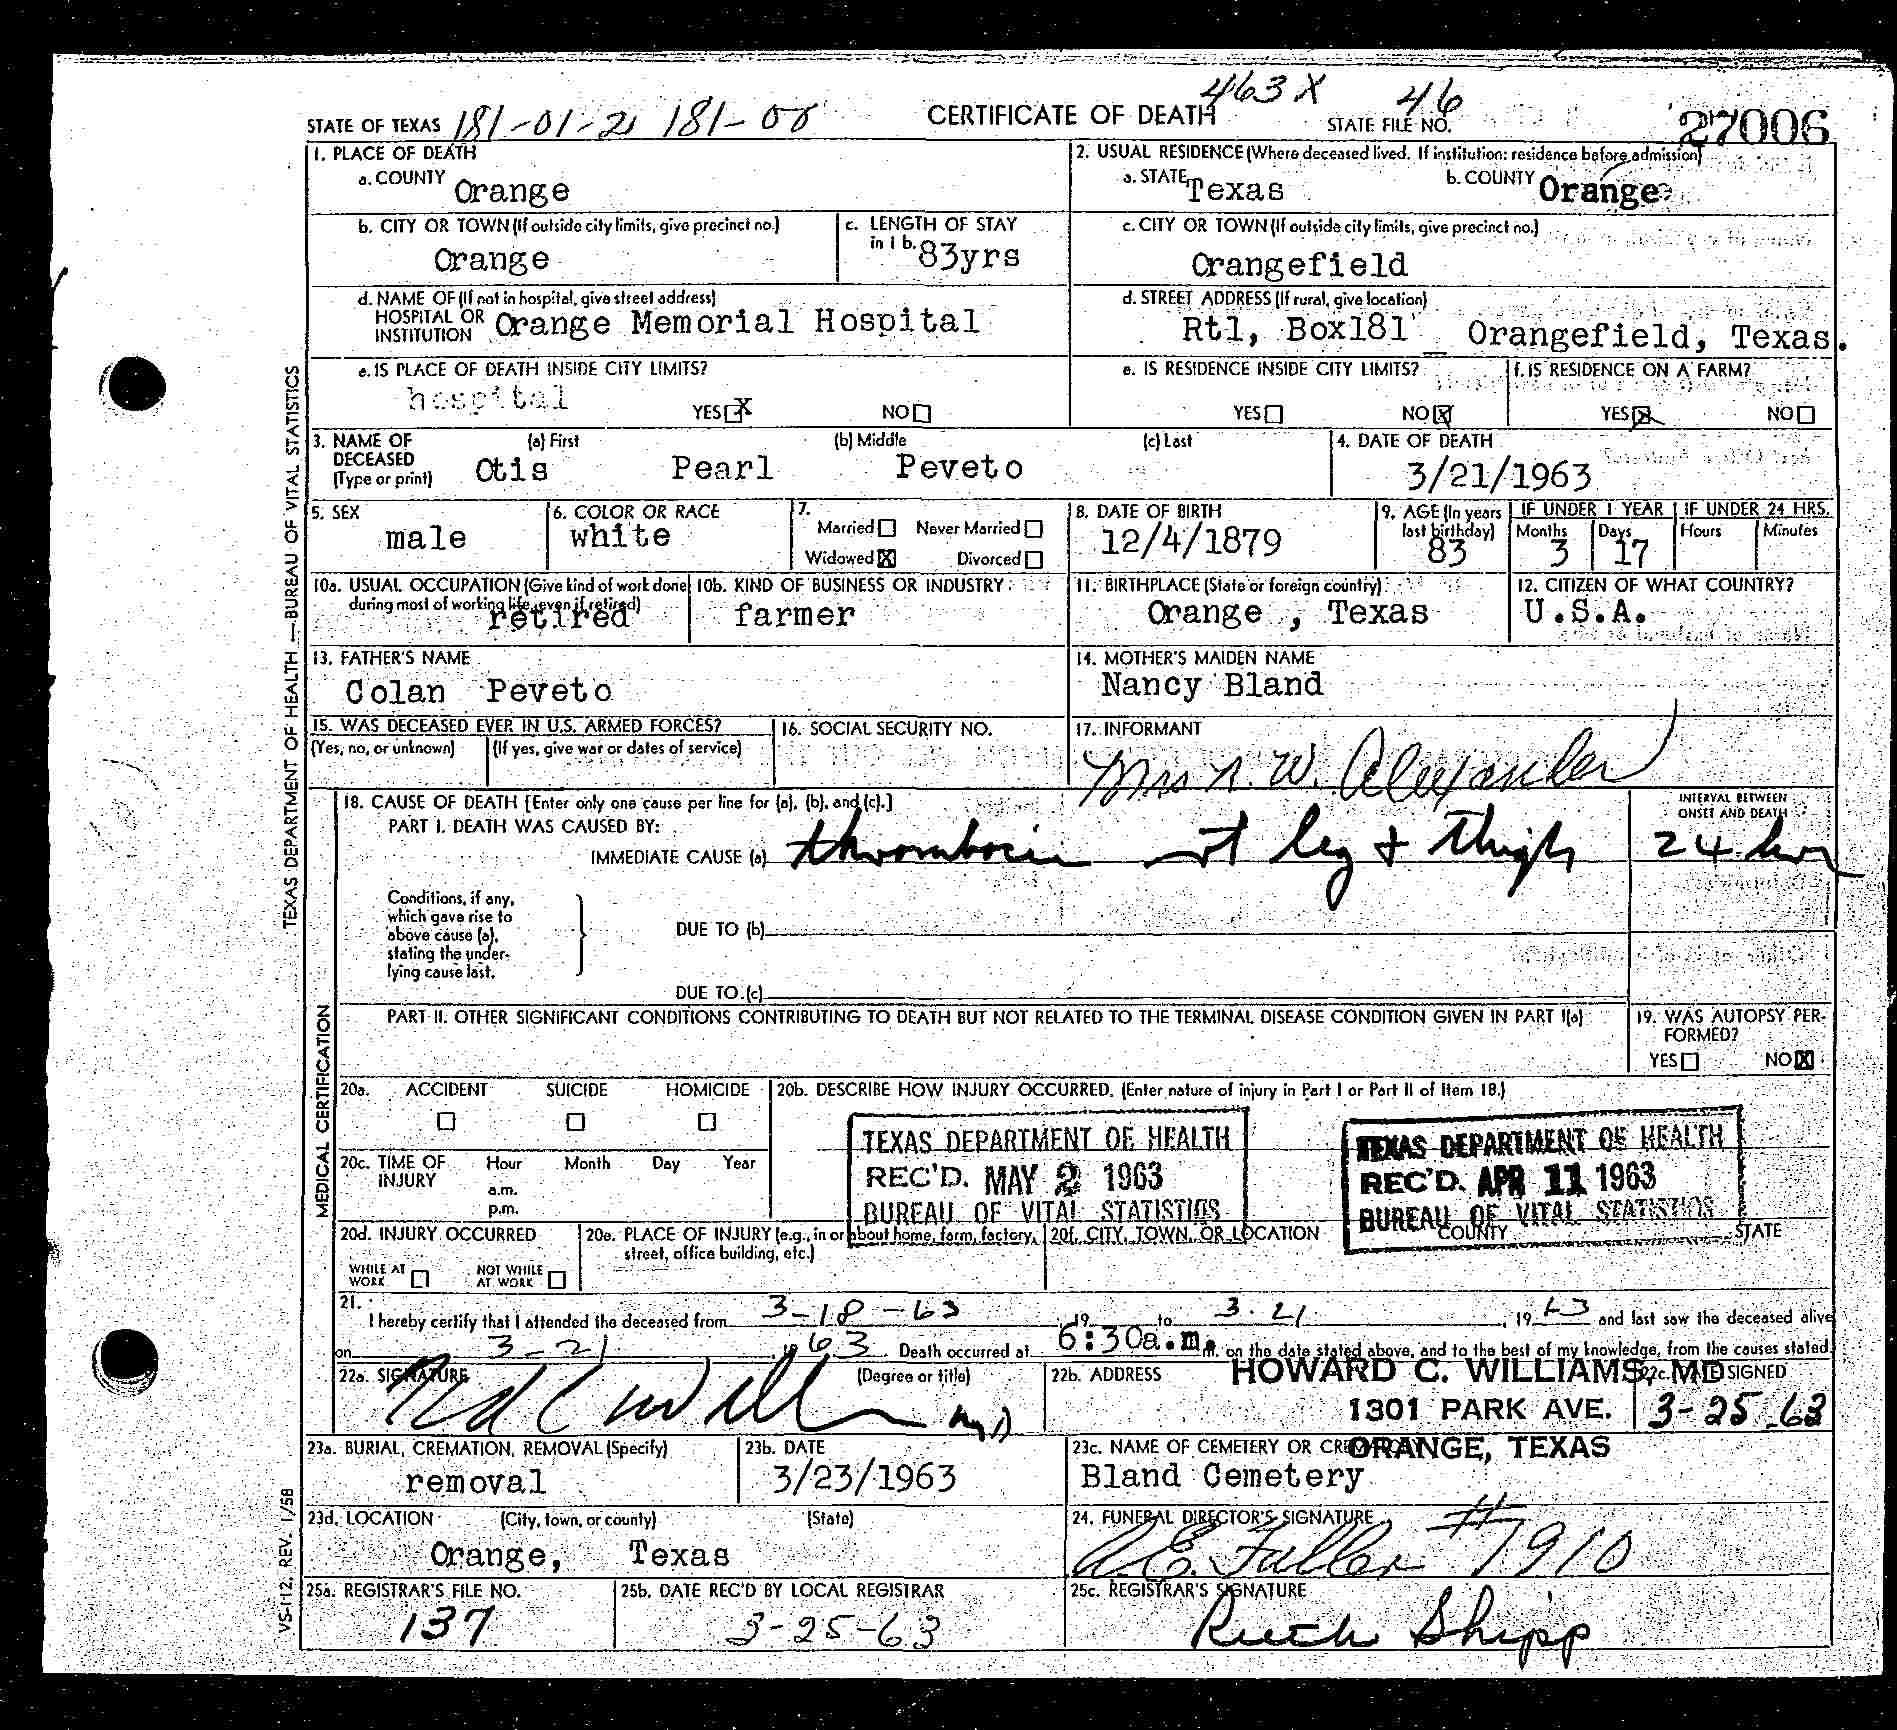 463 X 46
STATE OF TEXAS 181-01-2 181-00 CERTIFICATE OF DEATH STATE FILE NO. 27006
1. PLACE OF DEATH
a. COUNTY Orange
2. USUAL RESIDENCE (Where deceased lived. If institution: residence before admission)
a. STATE Texas b. COUNTY Orange
b. CITY OR TOWN (If outside city limits, give precinct no.)
Orange
c. LENGTH OF STAY
in 1 b. 83yrs
c. CITY OR TOWN (If outside city limits, give precinct no.)
Orangefield
d. NAME OF (If not in hospital, give street address)
HOSPITAL OR
INSTITUTION Orange Memorial Hospital
d. STREET ADDRESS (If rural, give location)
Rt1, Box181 Orangefield, Texas.
e. IS PLACE OF DEATH INSIDE CITY LIMITS?
hospital
YES X NO
e. IS RESIDENCE INSIDE CITY LIMITS?
YES NO X
f. IS RESIDENCE ON A FARM?
YES X NO
3. NAME OF
DECEASED
(Type or print)
(a) First (b) Middle (c) Last
Otis Pearl Peveto
4. DATE OF DEATH
3/21/1963
5. SEX
male
6. COLOR OR RACE
white
7.
Married Never Married
Widowed X Divorced
8. DATE OF BIRTH
12/4/1879
9. AGE (In years
last birthday)
83
IF UNDER 1 YEAR
Months Days
3 17
IF UNDER 24 HRS.
Hours Minutes
10a. USUAL OCCUPATION (Give kind of work done
during most of working life, even if retired)
retired
10b. KIND OF BUSINESS OR INDUSTRY
farmer
11. BIRTHPLACE (State or foreign country)
Orange , Texas
12. CITIZEN OF WHAT COUNTRY?
U.S.A.
13. FATHER'S NAME
Colan Peveto
14. MOTHER'S MAIDEN NAME
Nancy Bland
15. WAS DECEASED EVER IN U.S. ARMED FORCES?
(Yes, no, or unknown) (If yes, give war or dates of service)
16. SOCIAL SECURITY NO.
17. INFORMANT
Mrs N. W. Alexander
18. CAUSE OF DEATH [Enter only one cause per line for (a), (b), and (c).]
PART I. DEATH WAS CAUSED BY:
IMMEDIATE CAUSE (a) thrombosis rt leg + thigh
INTERVAL BETWEEN
ONSET AND DEATH
24 hrs
Conditions, if any,
which gave rise to
above cause (a),
stating the under-
lying cause last.
DUE TO (b)
DUE TO (c)
PART II. OTHER SIGNIFICANT CONDITIONS CONTRIBUTING TO DEATH BUT NOT RELATED TO THE TERMINAL DISEASE CONDITION GIVEN IN PART I(a)
19. WAS AUTOPSY PER-
FORMED?
YES NO X
20a. ACCIDENT SUICIDE HOMICIDE
20b. DESCRIBE HOW INJURY OCCURRED. (Enter nature of injury in Part I or Part II of Item 18.)
TEXAS DEPARTMENT OF HEALTH
REC'D. MAY 2 1963
BUREAU OF VITAL STATISTICS
TEXAS DEPARTMENT OF HEALTH
REC'D. APR 11 1963
BUREAU OF VITAL STATISTICS
20c. TIME OF
INJURY
Hour Month Day Year
a.m.
p.m.
20d. INJURY OCCURRED
WHILE AT
WORK
NOT WHILE
AT WORK
20e. PLACE OF INJURY (e.g., in or about home, farm, factory,
street, office building, etc.)
20f. CITY, TOWN, OR LOCATION COUNTY STATE
21.
I hereby certify that I attended the deceased from 3-18-63, 19 to 3-21, 1963 and last saw the deceased alive
on 3-21, 1963. Death occurred at 6:30a.m. m. on the date stated above, and to the best of my knowledge, from the causes stated.
22a. SIGNATURE (Degree or title)
MD
22b. ADDRESS
HOWARD C. WILLIAMS, MD
1301 PARK AVE.
ORANGE, TEXAS
22c. DATE SIGNED
3-25-63
23a. BURIAL, CREMATION, REMOVAL (Specify)
removal
23b. DATE
3/23/1963
23c. NAME OF CEMETERY OR CREMATORY
Bland Cemetery
23d. LOCATION (City, town, or county) (State)
Orange, Texas
24. FUNERAL DIRECTOR'S SIGNATURE
A.E. Fuller #1910
25a. REGISTRAR'S FILE NO.
137
25b. DATE REC'D BY LOCAL REGISTRAR
3-25-63
25c. REGISTRAR'S SIGNATURE
Ruth Shipp
TEXAS DEPARTMENT OF HEALTH — BUREAU OF VITAL STATISTICS
MEDICAL CERTIFICATION
VS-112, REV. 1/58